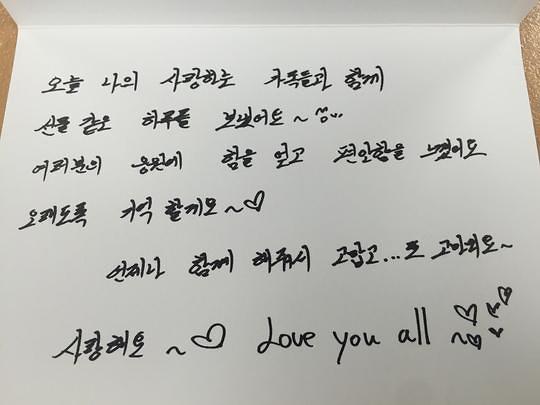 오늘 나의 사랑하는 가족들과 함께
선물 같은 하루를 보냈어요~
여러분의 응원에 힘을 얻고 편안함을 느꼈어요
오래도록 기억 할게요~♡
언제나 함께 해줘서 고맙고...또 고마워요~
사랑해요~♡ Love you all ~♡♡♡♡♡